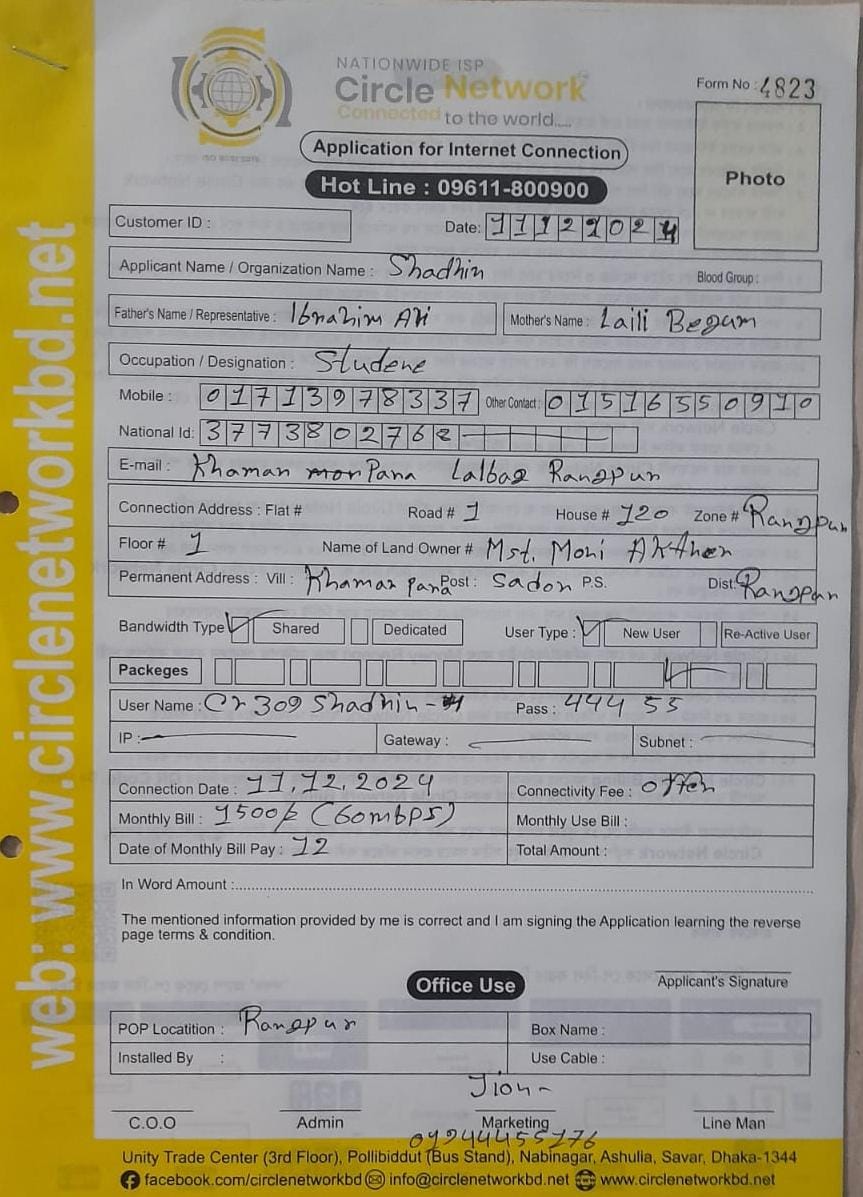 NATIONWIDE ISP
Circle Network
Connected to the world.....
Form No : 4823
Application for Internet Connection
Photo
Hot Line : 09611-800900
Customer ID :
Date: 11122024
Applicant Name / Organization Name : Shadhin
Blood Group :
Father's Name / Representative : Ibrahim Ali
Mother's Name : Laili Begum
Occupation / Designation : Student
Mobile : 01713978337 Other Contact : 01516550910
National Id: 3773802768
E-mail : Khamar morPara Lalbag Rangpur
Connection Address : Flat # Road # 1 House # 120 Zone # Rangpur
Floor # 1 Name of Land Owner # Mst. Moni Akther
Permanent Address : Vill : Khamar para Post : Sador P.S. Dist: Rangpur
Bandwidth Type Shared Dedicated User Type : New User Re-Active User
Packeges
User Name : Cr309 Shadhin- Pass : 444 55
IP : Gateway : Subnet :
Connection Date : 11.12.2024 Connectivity Fee : offer
Monthly Bill : 1500/= (60mbps) Monthly Use Bill :
Date of Monthly Bill Pay : 12 Total Amount :
In Word Amount :
The mentioned information provided by me is correct and I am signing the Application learning the reverse
page terms & condition.
Applicant's Signature
Office Use
POP Locatition : Rangpur Box Name :
Installed By : Use Cable :
C.O.O Admin Marketing Line Man
Unity Trade Center (3rd Floor), Pollibiddut (Bus Stand), Nabinagar, Ashulia, Savar, Dhaka-1344
facebook.com/circlenetworkbd info@circlenetworkbd.net www.circlenetworkbd.net
web: www.circlenetworkbd.net